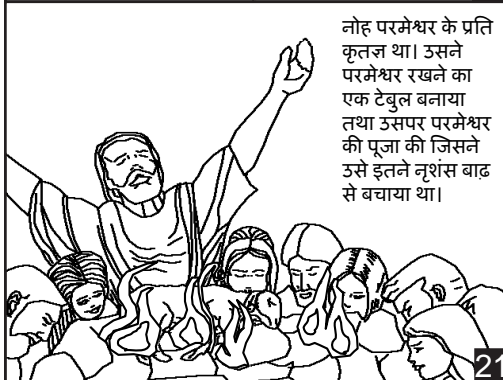 नोह परमेश्वर के प्रति
कृतज्ञ था। उसने
परमेश्वर रखने का
एक टेबुल बनाया
तथा उसपर परमेश्वर
की पूजा की जिसने
उसे इतने नृशंस बाढ़
से बचाया था।
21